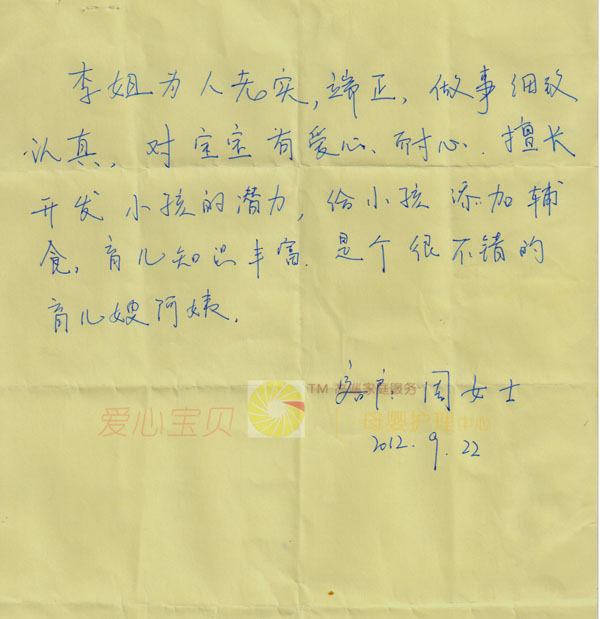 李姐为人老实,端正,做事细致
认真,对宝宝有爱心、耐心.擅长
开发小孩的潜力,给小孩添加辅
食,育儿知识丰富.是个很不错的
育儿嫂阿姨.
客户:周女士
2012.9.22
爱心宝贝
TM
家庭服务
母婴护理中心